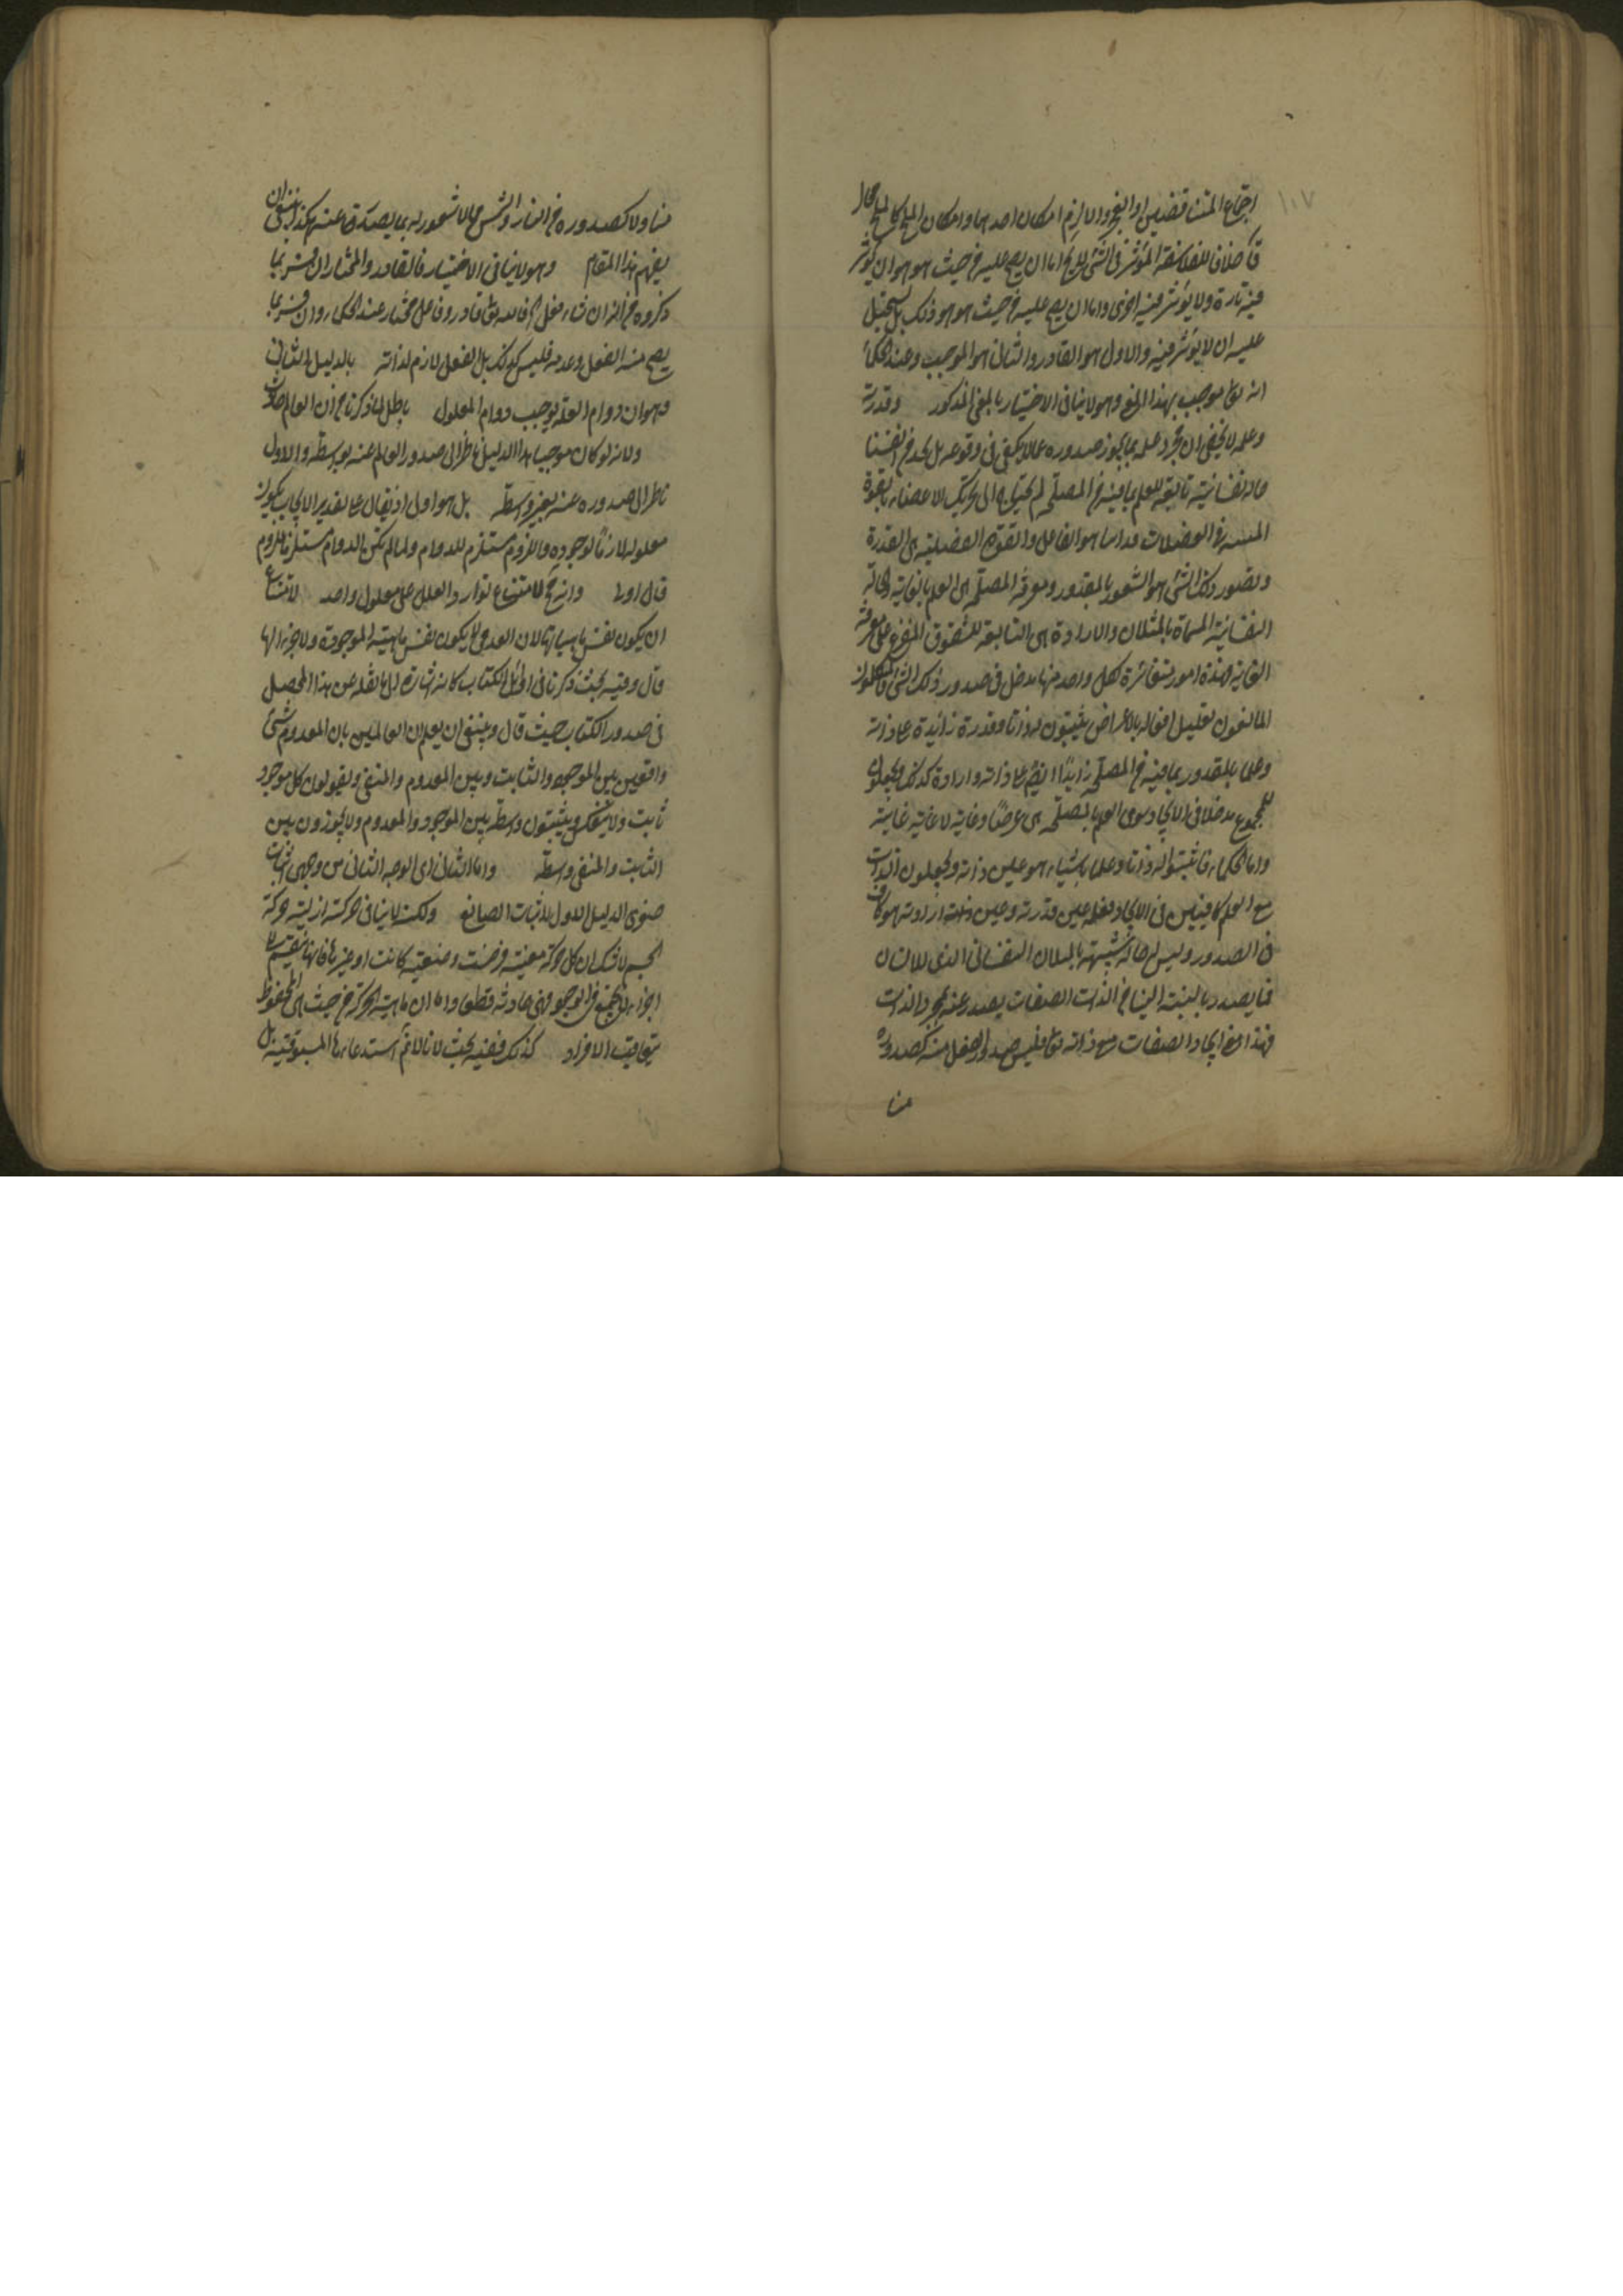 ١٠٧
اجتماع المتناقضين او العجز والا لزم امكان احدهما وامكان
خلافا للفلاسفة المؤثر في الشئ اما ان يصح عليه من حيث هو هو ان يؤثر
فيه تارة ولا يؤثر فيه اخرى واما ان يصح عليه من حيث هو هو ذلك بل يستحيل
عليه ان لا يؤثر فيه والاول هو القادر والثانى هو الموجب وعند الحكماء
انه تعالى موجب بهذا المعنى وهو لا ينافى الاختيار بالمعنى المذكور وقدرته
وعلمه لا يخفى ان مجرد علمه بما يجوز صدوره عنا لا يكفى فى وقوعه بل نجد من انفسنا
حالة نفسانية تابعة للعلم بما فيه من المصلحة ثم نحتاج الى تحريك الاعضاء بالقوة
فى العضلات هو الفاعل والقوة العضلية هى القدرة
وتصور ذلك الشئ هو الشعور بالمقدور ومعرفة المصلحة هى العلم بالغاية والحالة
النفسانية المسماة بالميلان والارادة هى التابعة للشوق المتفرع على معرفة
الغاية فهذه امور متغائرة لكل واحد منها مدخل فى صدور ذلك الشئ
المانعون تعليل افعاله بالاغراض يثبتون له ذاتا وقدرة زائدة على ذاته
وعلما بالمقدور بما فيه من المصلحة زايدا ايضا على ذاته وارادة كذلك ويجعلون
للمجموع مدخلا فى الايجاد سوى العلم بالمصلحة غرضا وغاية لا علة غائية
واما الحكماء فاثبتوا له ذاتا وعلما بالاشياء هو عين ذاته ويجعلون الذات
مع العلم كافيين فى الايجاد فعلمه عين قدرته وعين ارادته هو كاف
فى الصدور وليس له حالة شبيهة بالميلان النفسانى الذى للانسان
فما يصدر بالنسبة الينا من الذات الصفات يصدر عنه بمجرد الذات
فهذا معنى اتحاد الصفات مع ذاته تعالى فليس صدور الفعل منه كصدوره
منا
منا ولا كصدوره من النار والشمس مما لا شعور له بما يصدر عنه هكذا ينبغى ان
يفهم هذا المقام وهو لا ينافى الاختيار فالقادر والمختار ان فسر بما
ذكروه من انه ان شاء فعل فالله تعالى قادر وفاعل مختار عند الحكماء وان فسر بما
يصح منه الفعل وعدمه فليس كذلك بل الفعل لازم لذاته بالدليل الثانى
وهو ان دوام العلة يوجب دوام المعلول باطل لما ذكرنا من ان العالم حادث
ولانه لو كان موجبا هذا الدليل ناظر الى صدور العالم عنه بوسطه والاول
ناظر الى صدوره عنه بغير واسطة بل هو اولى اذ يقال على تقدير الايجاب يكون
معلوله لازما لوجوده واللزوم مستلزم للدوام ولما لم يكن بالدوام مستلزما للزوم
قال اولى وانه لامتناع توارد العلل على معلول واحد لامتناع
ان يكون نفس ماهياتها لان العدمى لا يكون نفس ماهية الموجودة ولا جزءا لها
قال وفيه بحث ذكرنا فى اوائل الكتاب كانه اشارة الى ما نقله عن هذا المحصل
فى صدور الكتاب حيث قال وينبغى ان يعلم ان القائلين بان المعدوم شئ
وافقين بين الموجود والثابت وبين المعدوم والمنفى ويقولون كل موجود
ثابت ولا ينعكس ويثبتون واسطة بين الموجود والمعدوم ولا يجوزون بين
الثابت والمنفى واسطة واما الثانى اى الوجه الثانى من وجهى اثبات
صغرى الدليل الاول لاثبات الصانع ولكنه لا ينافى حركته ازلية حركة
الجسم لا شك ان كل حركة معينة فرضت وضعية كانت او غيرها فانها تنقسم
اجزاء لا تجتمع فى الوجود فهى حادثة قطعا واما ان ماهية الحركة من حيث هى المحفوظ
بتعاقب الافراد كذلك ففيه بحث لانا لا نم استدعاءها المسبوقية بل